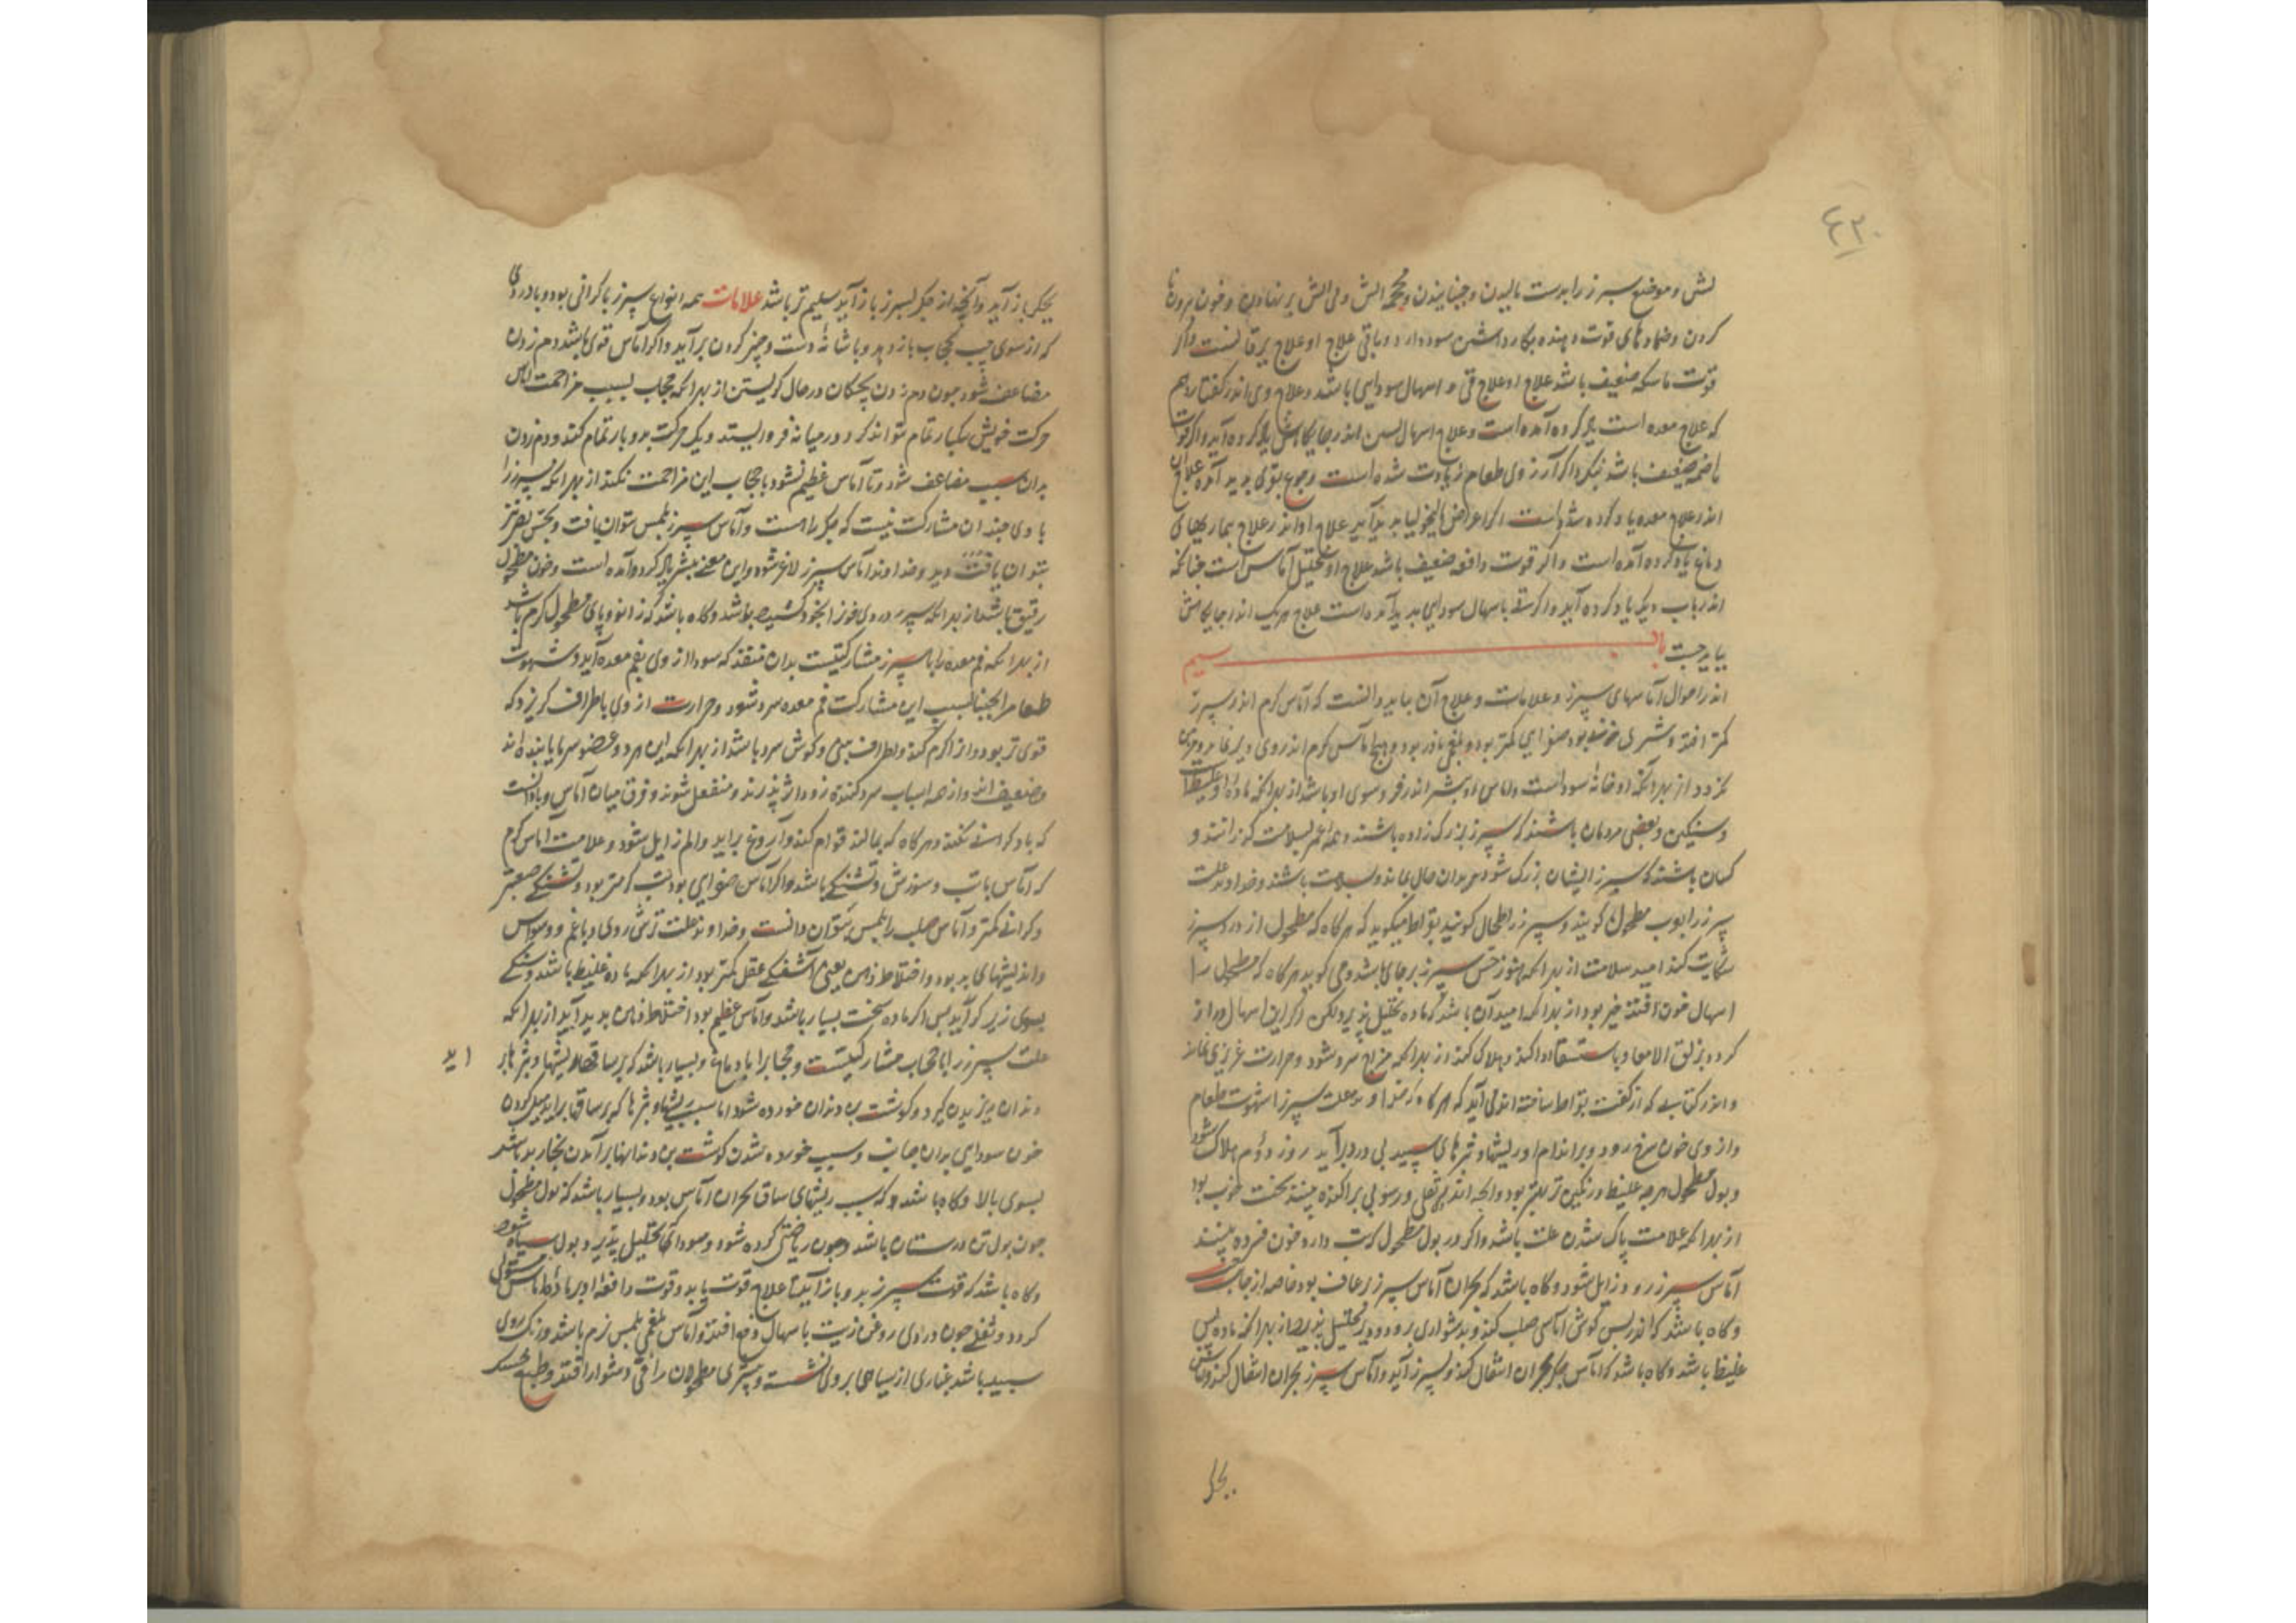 ۴۲۰
لش و موضع سپرز را بدست مالیدن و جنبانیدن و محجمه آتش و بی آتش بر نهادن و خون بیرون نا
کردن و ضمادهای قوت دهنده بکار داشتن سود دارد و باقی علاج او علاج یرقانست و اگر
قوت ماسکه ضعیف باشد علاج او علاج قی و اسهال سودایی باشد و علاج وی اندر گفتار دهم
که علاج معده است یاد کرده آمده است و علاج اسهال اندر جایگاهش یاد کرده آید و اگر قوت
هاضمه ضعیف باشد و اگر آرزوی طعام زیادت شده است و جوع بقری پدید آمده علاج آن
اندر علاج معده یاد کرده شده است اگر اعراض مالیخولیا پدید آید علاج او اندر علاج بیماریهای
دماغ یاد کرده آمده است و اگر قوت دافعه ضعیف باشد علاج او تحلیل آماس است چنانکه
اندر باب دیگر یاد کرده آید و اگر قی یا اسهال سودایی پدید آمده است علاج هر یک اندر جایگاهش
بباید جست باب سیم
اندر احوال آماسهای سپرز و علامات و علاج آن بباید دانست که آماس گرم اندر سپرز
کمتر افتد و بیشتری خونی بود صفرایی کمتر بود و بلغمی نادر بود و هیچ آماس گرم اندر وی دیر نماند و
گردد از بهر آنکه او خانه سودا است و آماس او بیشتر اندر فرود سوی او باشد از بهر آنکه ماده او غلیظ است
و سنگین و بعضی مردمان باشند که سپرز بزرگ زاده باشند و همه عمر بسلامت گذرانند و
کسان باشند که سپرز ایشان بزرگ شود و هم بدان حال بماند و بسلامت باشند و خداوند علت
سپرز را بوب مطحول گویند و سپرز را طحال گویند بقراط میگوید که هر گاه که مطحول از درد سپرز
شکایت کند امید سلامت از بهر آنکه هنوز حس سپرز بر جای باشد و می گوید هر گاه که مطحول را
اسهال خون افتد خیر بود از بهر آنکه امید آن باشد که ماده تحلیل پذیرد لکن اگر این اسهال دراز
گردد بزلق الامعا و یا استسقا ادا کند و هلاک کند از بهر آنکه مزاج سرد شود و حرارت غریزی نماند
و اندر کتابی که از گفت بقراط ساخته اند می آید که هر گاه خداوند علت سپرز را شهوت طعام
و از وی خون سرخ رود و بر اندام او ریشها و بثرهای سپید بی درد برآید روز دوم هلاک شود
و بول مطحول هر چه غلیظ و رنگین تر بهتر بود و آنچه اندر وی ثفلی و رسوبی پراکنده بینند سخت خوب بود
از بهر آنکه علامت پاک شدن علت باشد و اگر در بول مطحول که تب دارد خون فسرده بینند
آماس سپرز زود زایل شود و گاه باشد که بحران آماس سپرز رعاف بود خاصه از جانب چپ
و گاه باشد که اندر پس گوش آماسی صلب کند و بدشواری پزد و دیر تحلیل پذیرد از بهر آنکه ماده پس
غلیظ باشد و گاه باشد که آماس جگر بحران انتقال کند و بسپرز آید و آماس سپرز بحران انتقال کند و
بجگر
بجگر باز آید و آنچه از جگر بسپرز باز آید سلیم تر باشد علامات همه انواع سپرز با گرانی بود و با دردی
که از سوی چپ بحجاب باز دهد و با شانه دست و چنبر گردن برآید و اگر آماس قوی باشد دم زدن
مضاعف شود چون دم زدن بچگان در حال گریستن از بهر آنکه حجاب بسبب مزاحمت آماس
حرکت خویش یکبار تمام نتواند کرد در میانه فرو ایستد و یک حرکت بدو بار تمام کند و دم زدن
بدان سبب مضاعف شود و تا آماس عظیم نشود با حجاب این مزاحمت نکند از بهر آنکه سپرز را
با وی چندان مشارکت نیست که جگر راست و آماس سپرز بلمس توان یافت و بحس بصر نیز
بتوان یافت دید و خداوند آماس سپرز لاغر شود و این معنی پیشتر یاد کرده آمده است و خون مطحول
رقیق باشد از بهر آنکه سپرز دردی خون را بخود کشیده باشد و گاه باشد که زانو و پای مطحول گرم باشد
از بهر آنکه فم معده را با سپرز مشارکتیست بدان منفذ که سودا از وی بفم معده آید و شهوت
طعام را بجنباند بسبب این مشارکت فم معده سرد شود و حرارت از وی باطراف گریزد که
قوی تر بود و آن را گرم کند و اطراف بینی و گوش سرد باشد از بهر آنکه این هر دو عضو سرما یابنده اند
و ضعیف اند و از همه اسباب سرد کننده زود اثر پذیرند و منفعل شوند و فرق میان آماس و باد آنست
که باد گرانی نکند و هر گاه که بمالند قراقر کند و آروغ برآید و الم زایل شود و علامت آماس گرم
که آماس با تب و سوزش و تشنگی باشد و اگر آماس صفرایی بود تب گرمتر بود و تشنگی صعبتر
و گرانی کمتر و آماس صلب را بلمس بتوان دانست و خداوند علت ترش روی و با غم و وسواس
و اندیشهای بد بود و اختلاط ذهن یعنی آشفتگی عقل کمتر بود از بهر آنکه ماده غلیظ باشد و
بسوی زیر گراید پس اگر ماده سخت بسیار باشد و آماس عظیم بود اختلاط ذهن پدید آید از بهر آنکه
علت سپرز را با حجاب مشارکتیست و حجاب را با دماغ و بسیار باشد که بر ساقها ریشها و بثرها بر
اید
دندان ریزیدن گیرد و گوشت بن دندان خورده شود اما سبب ریشها و بثرها که بر ساقها برآید میل کردن
خون سودایی بدان جانب و سبب خورده شدن گوشت بن دندانها برآمدن بخار بد باشد
بسوی بالا و گاه باشد که سبب ریشهای ساق بحران آماس بود و بسیار باشد که بول مطحول
چون بول تن درستان باشد و چون ریاضتی کرده شود و سودا تحلیل پذیرد بول سیاه شود
و گاه باشد که قوت سپرز بدو باز آید بعلاج قوت یابد و قوت دافعه او بر ماده آماس مستولی
گردد و ثفلی چون دردی روغن زیت باسهال دفع افتد و آماس بلغمی بلمس نرم باشد و رنگ روی
سپید باشد غباری از سیاهی بر وی نشسته و بیشتری مطحولان را قی دشوار افتد و طبع خشک